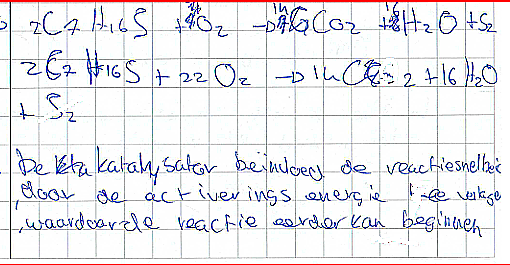 2C7H16S + O2 → 14CO2 + 16H2O + S2
2C7H16S + 22O2 → 14CO2 + 16H2O
+ S2
De katalysator beïnvloed de reactiesnelheid
door de activerings energie te verlage
, waardoor de reactie eerder kan beginnen